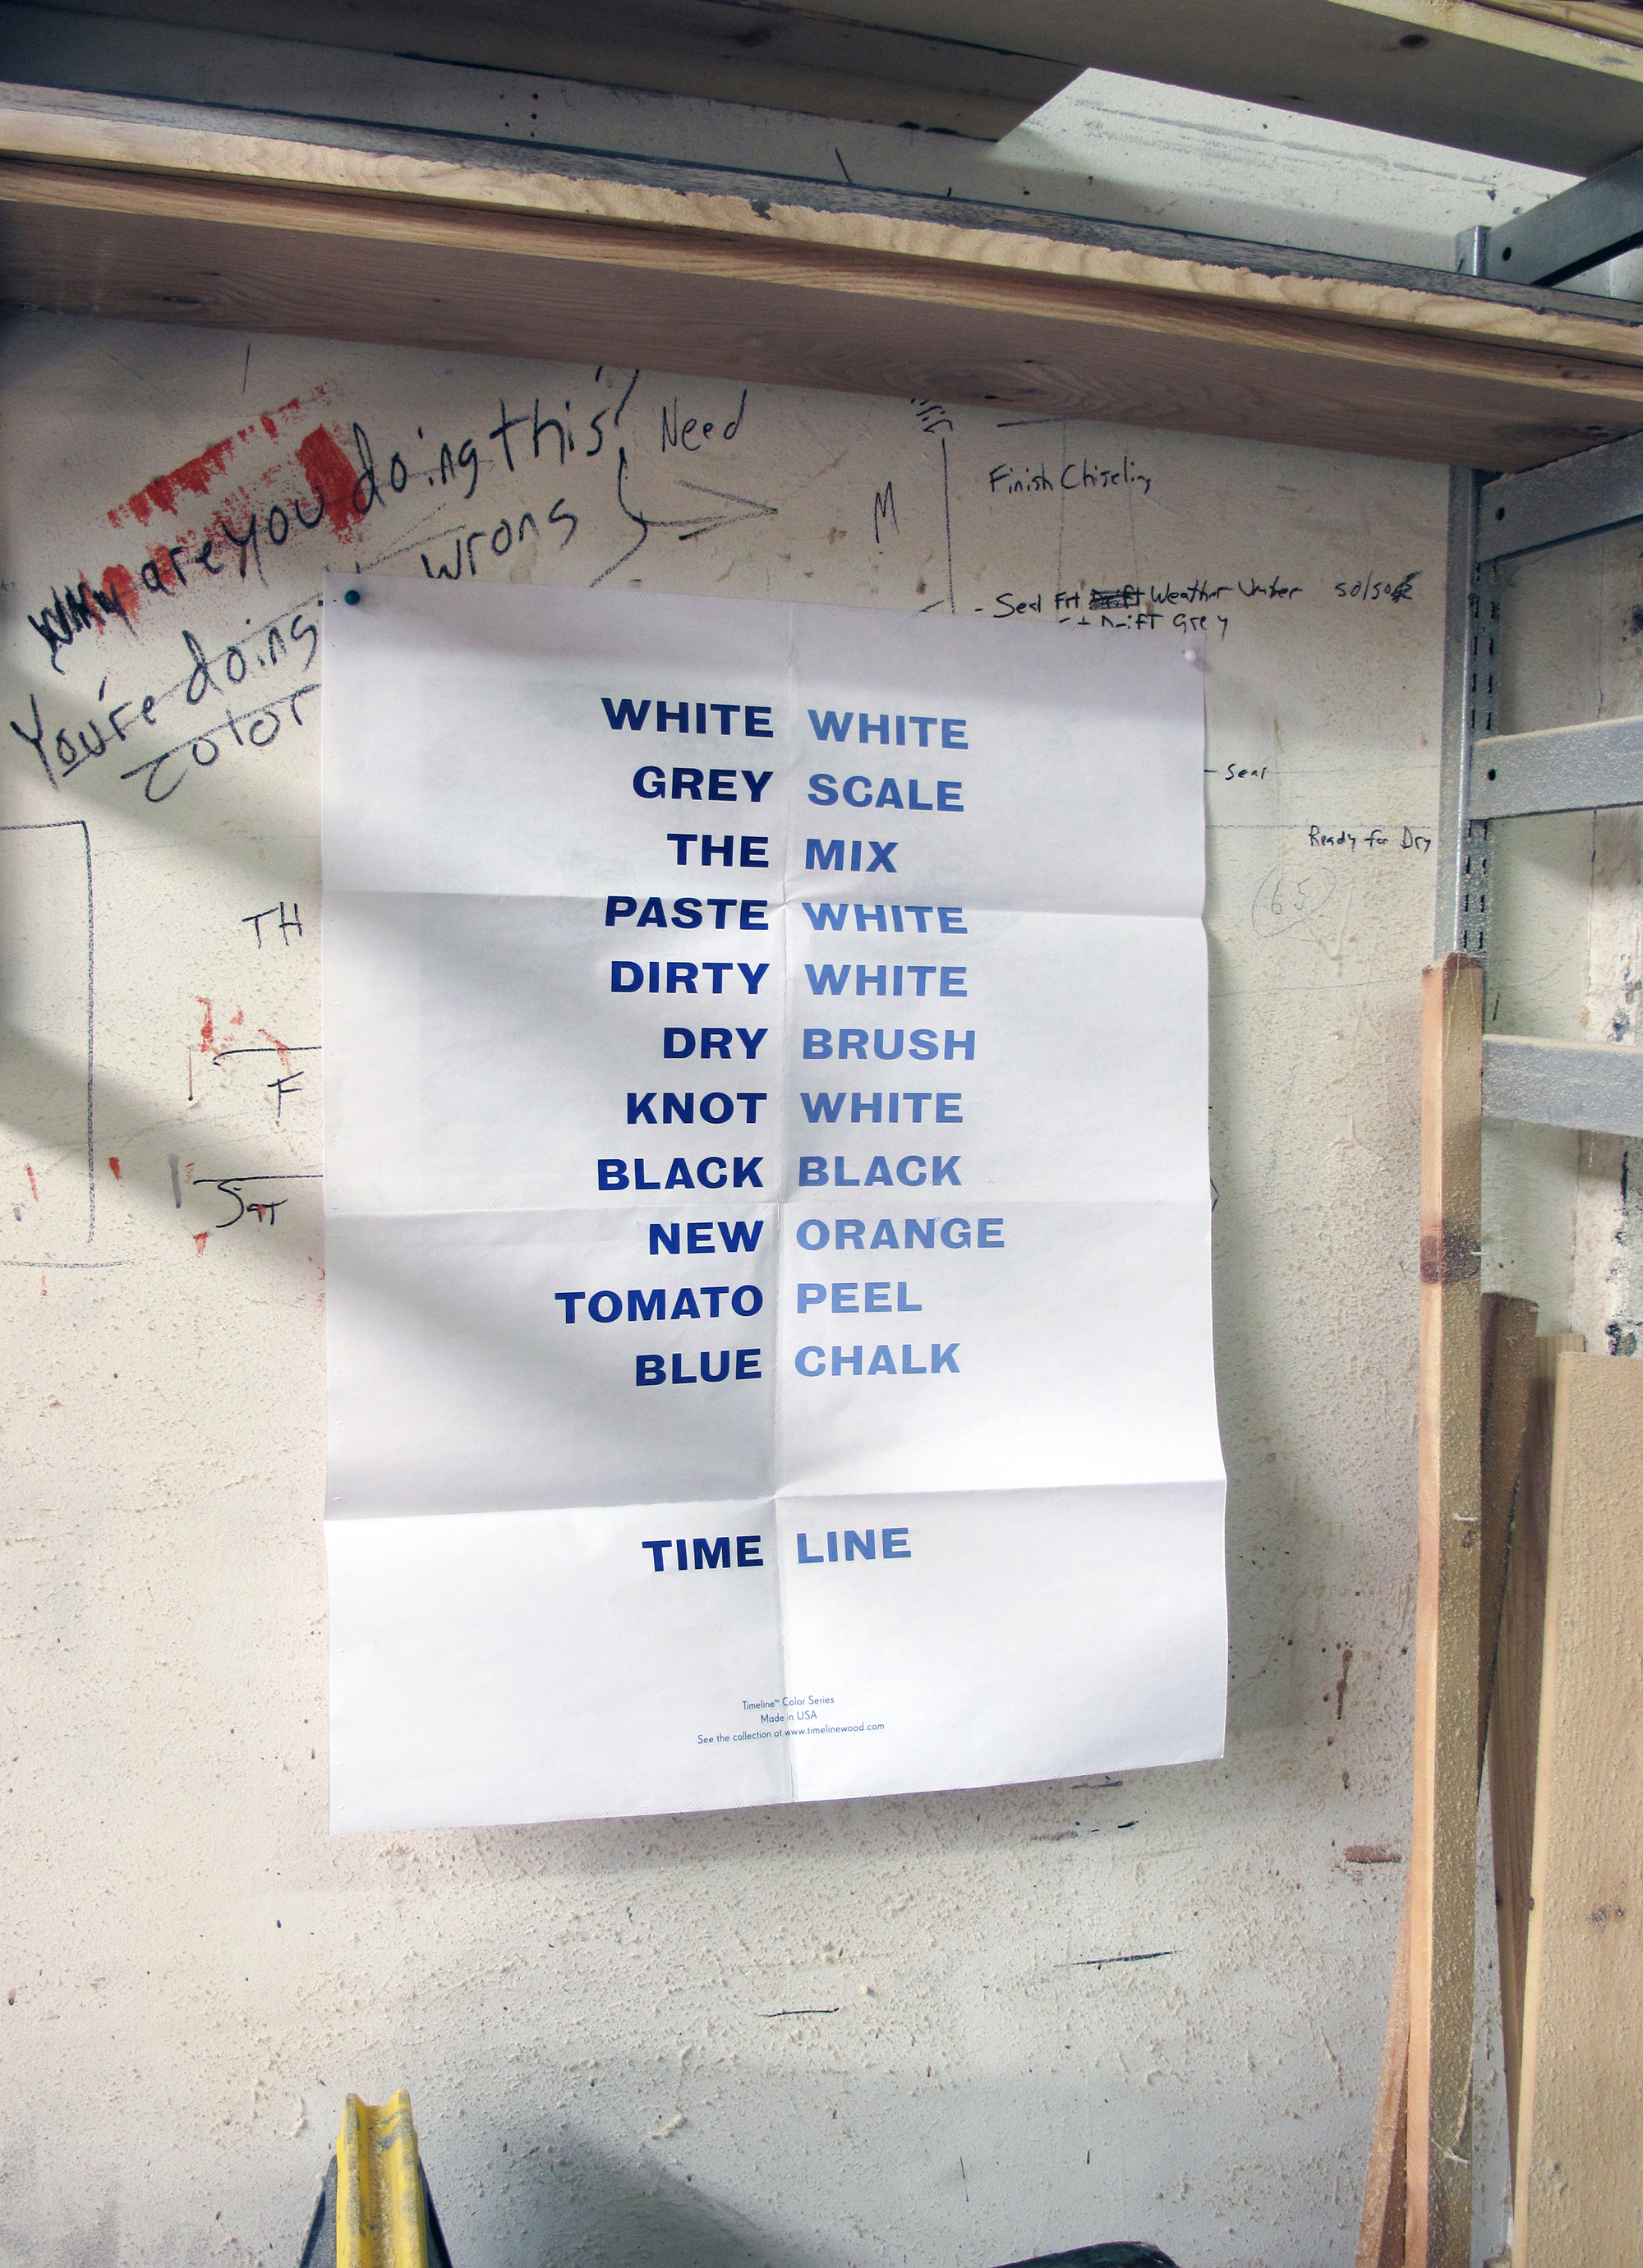 Why are you doing this?
Need
wrong
You're doing
color
M
Finish Chiseling
- Seal Frt Weather Umber 50/50
Drift Grey
WHITE WHITE
GREY SCALE
THE MIX
PASTE WHITE
DIRTY WHITE
DRY BRUSH
KNOT WHITE
BLACK BLACK
NEW ORANGE
TOMATO PEEL
BLUE CHALK
TIME LINE
Timeline™ Color Series
Made in USA
See the collection at www.timelinewood.com
- Seal
Ready for Dry
65
TH
F
Sat